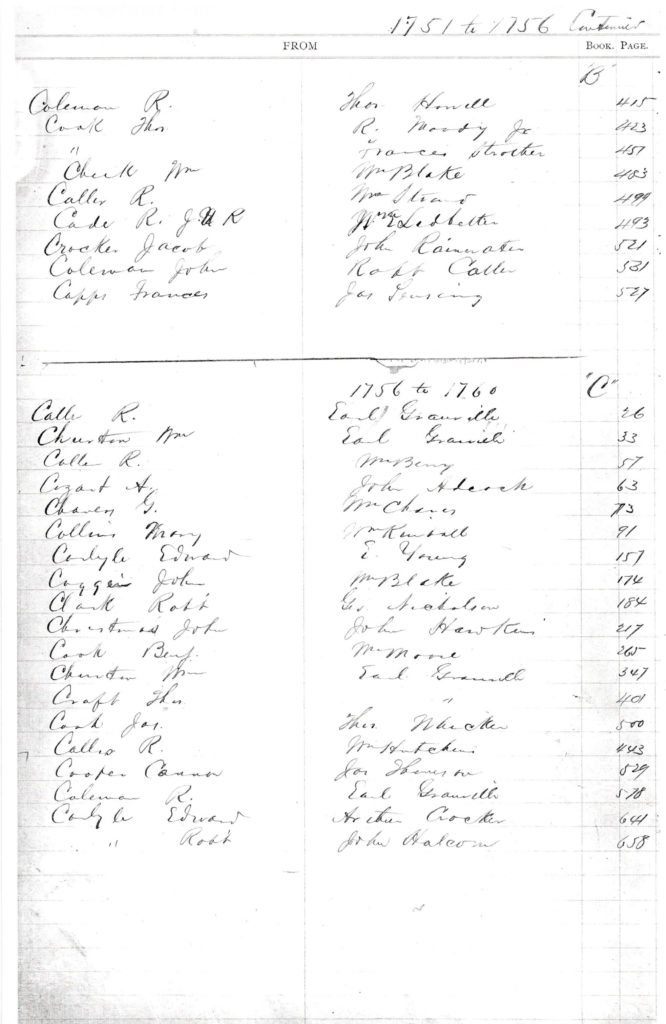 1751 to 1756 Continued
FROM BOOK. PAGE.
"B"
Coleman R. Thos Howell 415
Cook Thos R. Moody Jr 423
" Frances Strother 457
Cheek Wm Wm Blake 483
Caller R. Wm 499
Cade R. J & R Wm Ledbetter 493
Crocker Jacob John Rainwater 521
Coleman John Robt Caller 531
Capps Frances Jas 527
1756 to 1760 "C"
Caller R. Earl Granville 26
Churton Wm Earl Granville 33
Caller R. Wm Berry 57
Cozart A. John Adcock 63
Chavers G. Wm Chavers 73
Collins Mary Wm Kimball 91
Carlyle Edward E. Young 157
Coggin John Wm Blake 174
Clark Robt Go Nicholson 184
Christmas John John Hawkins 217
Cook Benj. Wm Moore 265
Churton Wm Earl Granville 347
Craft Thos. " 401
Cook Jas. Thos Whicker 500
Caller R. Wm Hutchins 443
Cooper Cannon Jas 529
Coleman R. Earl Granville 578
Carlyle Edward Arthur Crocker 641
" Robt John Halcom 658